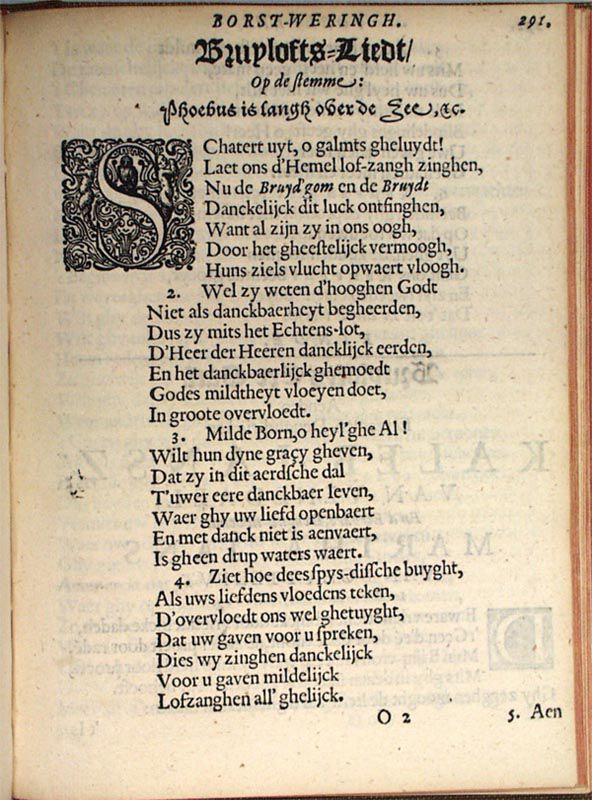 BORST-WERINGH. 291.
Bruylofts-Liedt/
Op de stemme:
Phoebus is langh over de Zee, &c.
SChatert uyt, o galmts gheluydt!
Laet ons d'Hemel lof-zangh zinghen,
Nu de Bruyd'gom en de Bruydt
Danckelijck dit luck ontfinghen,
Want al zijn zy in ons oogh,
Door het gheestelijck vermoogh,
Huns ziels vlucht opwaert vloogh.
2. Wel zy weten d'hooghen Godt
Niet als danckbaerheyt begheerden,
Dus zy mits het Echtens-lot,
D'Heer der Heeren dancklijck eerden,
En het danckbaerlijck ghemoedt
Godes mildtheyt vloeyen doet,
In groote overvloedt.
3. Milde Born, o heyl'ghe Al!
Wilt hun dyne graçy gheven,
Dat zy in dit aerdsche dal
T'uwer eere danckbaer leven,
Waer ghy uw liefd openbaert
En met danck niet is aenvaert,
Is gheen drup waters waert.
4. Ziet hoe dees spys-dissche buyght,
Als uws liefdens vloedens teken,
D'overvloedt ons wel ghetuyght,
Dat uw gaven voor u spreken,
Dies wy zinghen danckelijck
Voor u gaven mildelijck
Lofzanghen all' ghelijck.
O 2 5. Aen